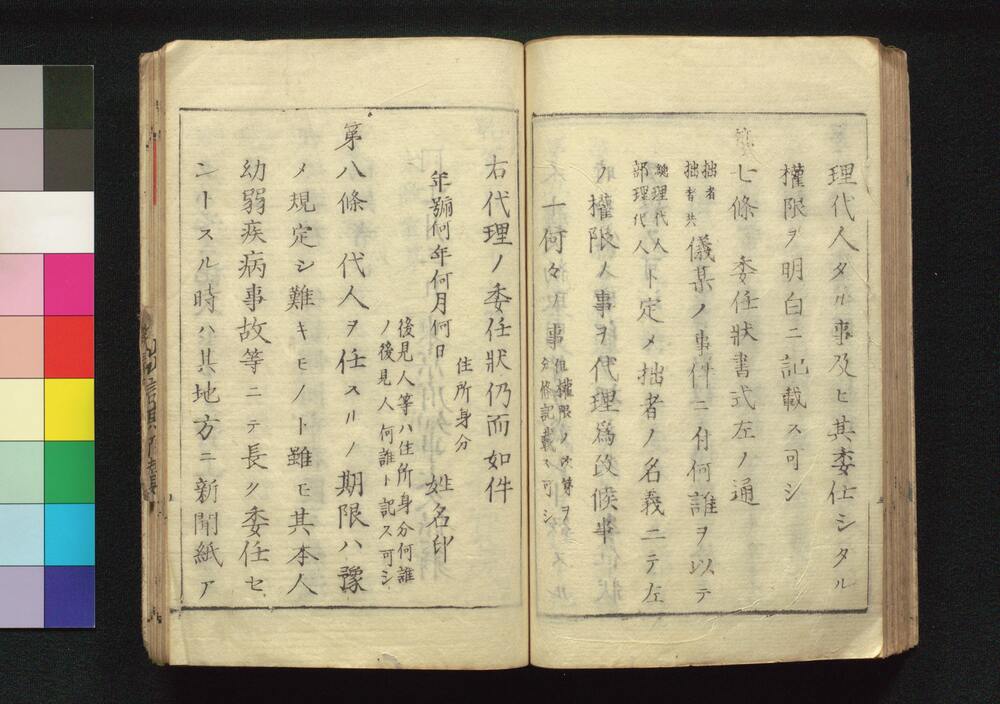 理代人タル事及ヒ其委任シタル
權限ヲ明白ニ記載ス可シ
第七條 委任狀書式左ノ通
拙者
拙者共
儀某ノ事件ニ付何誰ヲ以テ
總理代人
部理代人
ト定メ拙者ノ名義ニテ左
ノ權限ノ事ヲ代理爲致候事
一何々ノ事
但權限ノ次第ヲ
分條記載ス可シ
右代理ノ委任狀仍而如件
住所身分
年號何年何月何日 姓名印
後見人等ハ住所身分何誰
ノ後見人何誰ト記ス可シ
第八條 代人ヲ任スルノ期限ハ豫
メ規定シ難キモノト雖モ其本人
幼弱疾病事故等ニテ長ク委任セ
ントスル時ハ其地方ニ新聞紙ア